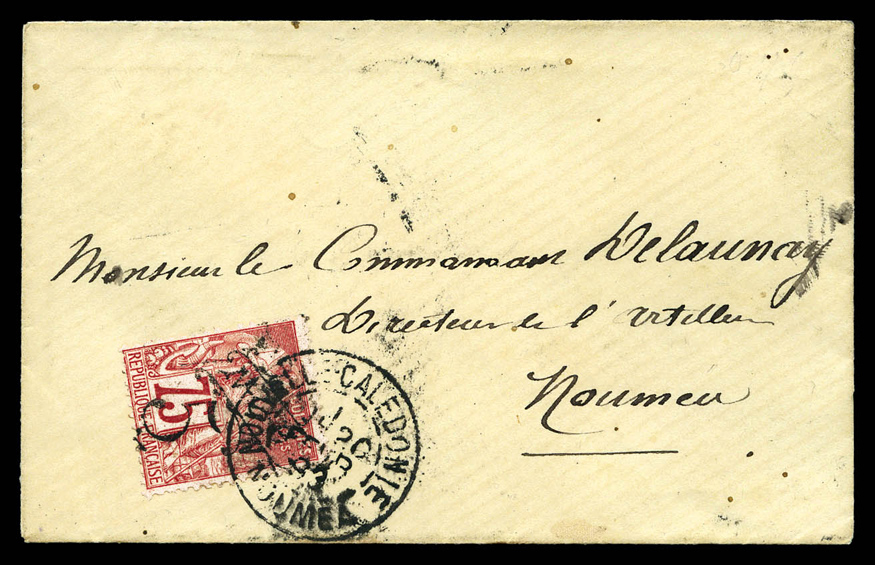 Monsieur le Commandant Delaunay
Directeur de l'Artillerie
Nouméa
75
RÉPUBLIQUE FRANÇAISE
NOUVELLE CALEDONIE
NOUMEA